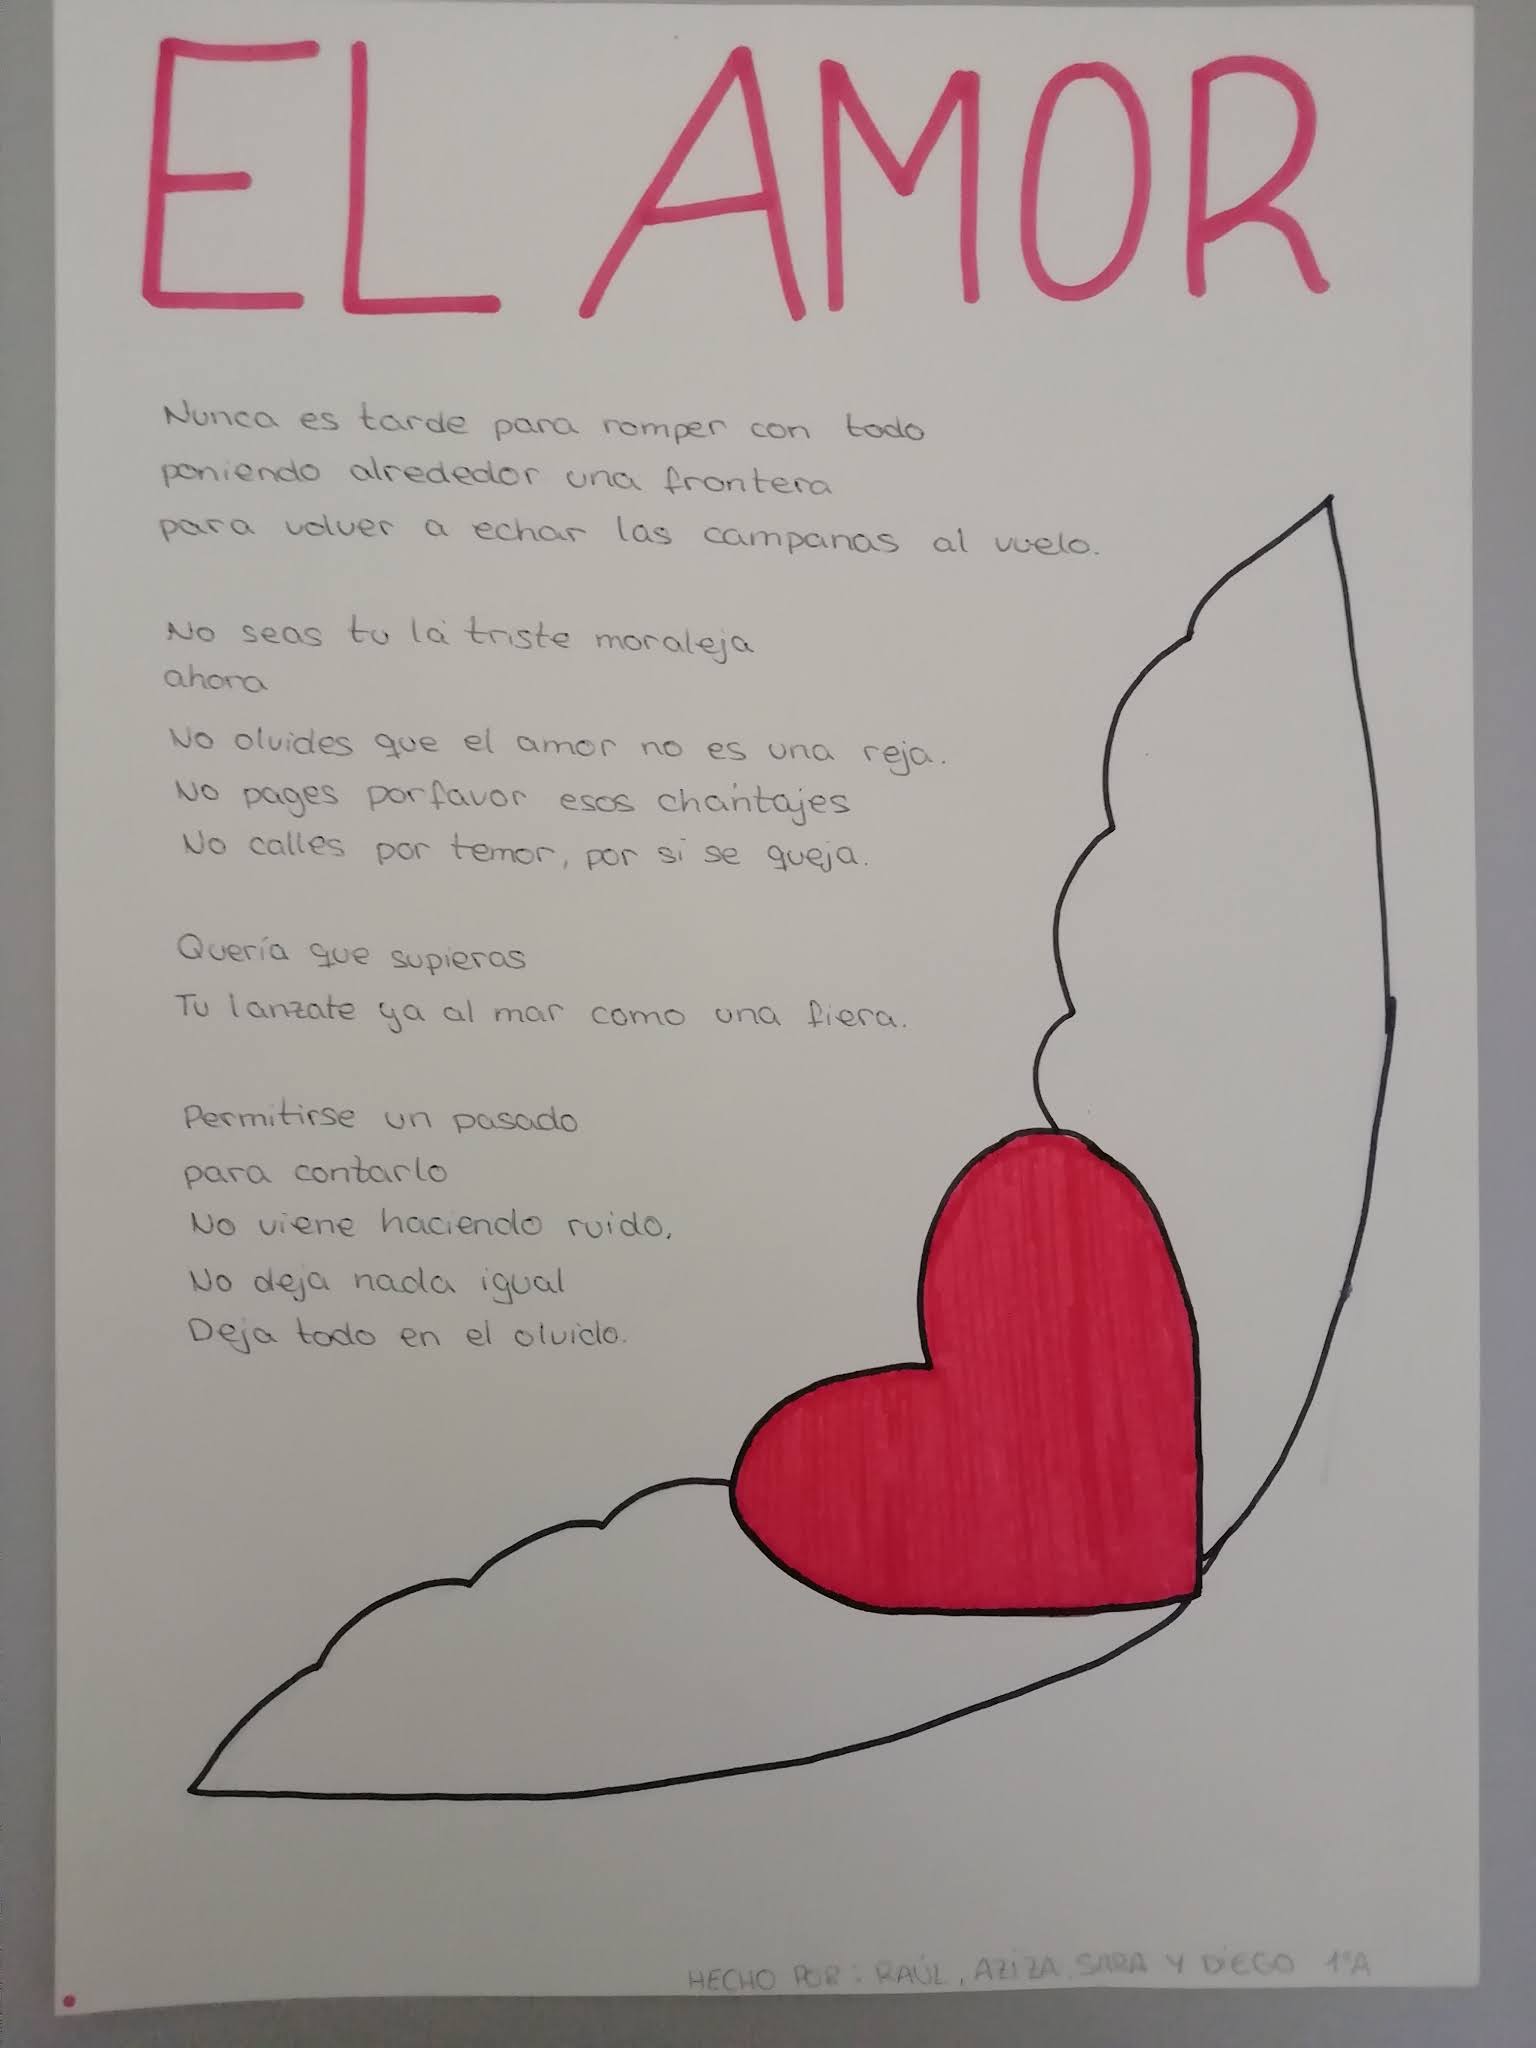 EL AMOR
Nunca es tarde para romper con todo
poniendo alrededor una frontera
para volver a echar las campanas al vuelo.
No seas tu la triste moraleja
ahora
No olvides que el amor no es una reja.
No pages porfavor esos chantajes
No calles por temor, por si se queja.
Quería que supieras
Tu lanzate ya al mar como una fiera.
Permitirse un pasado
para contarlo
No viene haciendo ruido,
No deja nada igual
Deja todo en el olvido.
HECHO POR: RAÚL, AZIZA, SARA Y DIEGO 1ºA